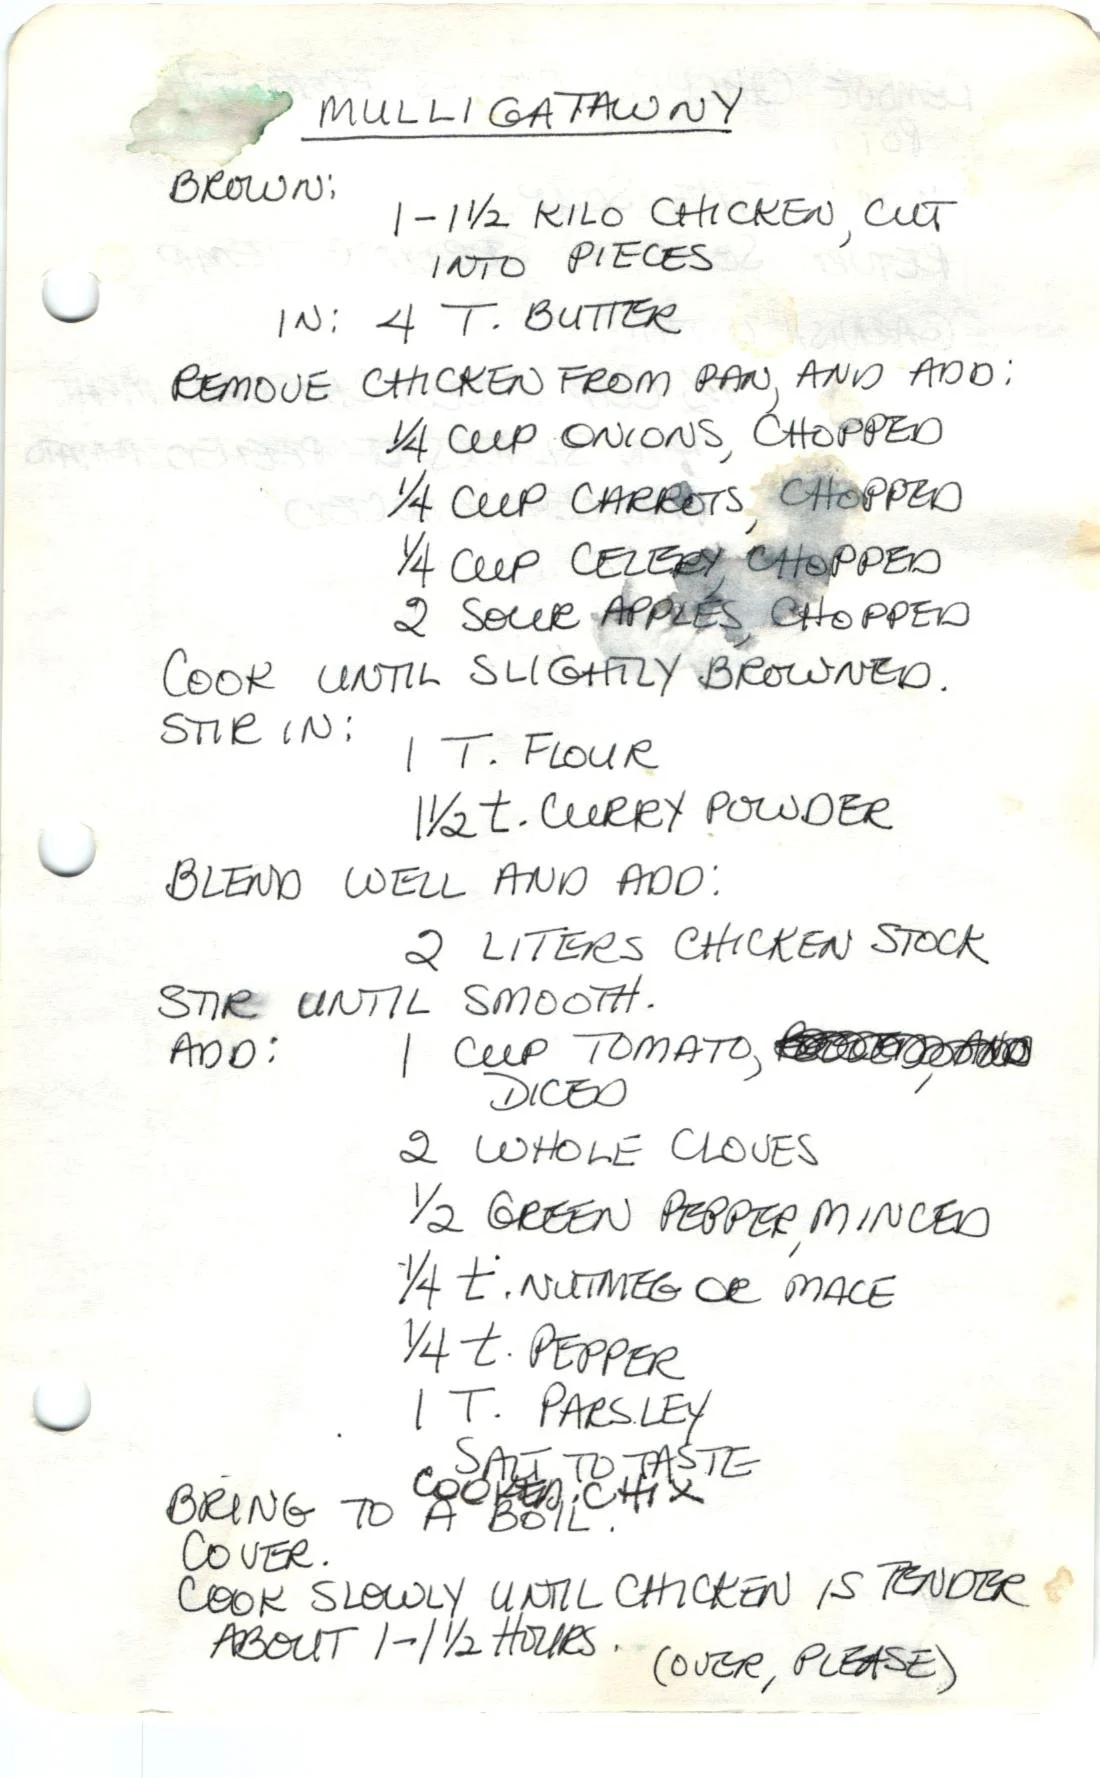 MULLIGATAWNY
BROWN:
1-1½ KILO CHICKEN, CUT
INTO PIECES
IN: 4 T. BUTTER
REMOVE CHICKEN FROM PAN, AND ADD:
¼ CUP ONIONS, CHOPPED
¼ CUP CARROTS, CHOPPED
¼ CUP CELERY, CHOPPED
2 SOUR APPLES, CHOPPED
COOK UNTIL SLIGHTLY BROWNED.
STIR IN:
1 T. FLOUR
1½ t. CURRY POWDER
BLEND WELL AND ADD:
2 LITERS CHICKEN STOCK
STIR UNTIL SMOOTH.
ADD: 1 CUP TOMATO,
DICED
2 WHOLE CLOVES
½ GREEN PEPPER, MINCED
¼ t. NUTMEG OR MACE
¼ t. PEPPER
1 T. PARSLEY
SALT TO TASTE
COOKED CHIX
BRING TO A BOIL.
COVER.
COOK SLOWLY UNTIL CHICKEN IS TENDER
ABOUT 1-1½ HOURS.
(OVER, PLEASE)